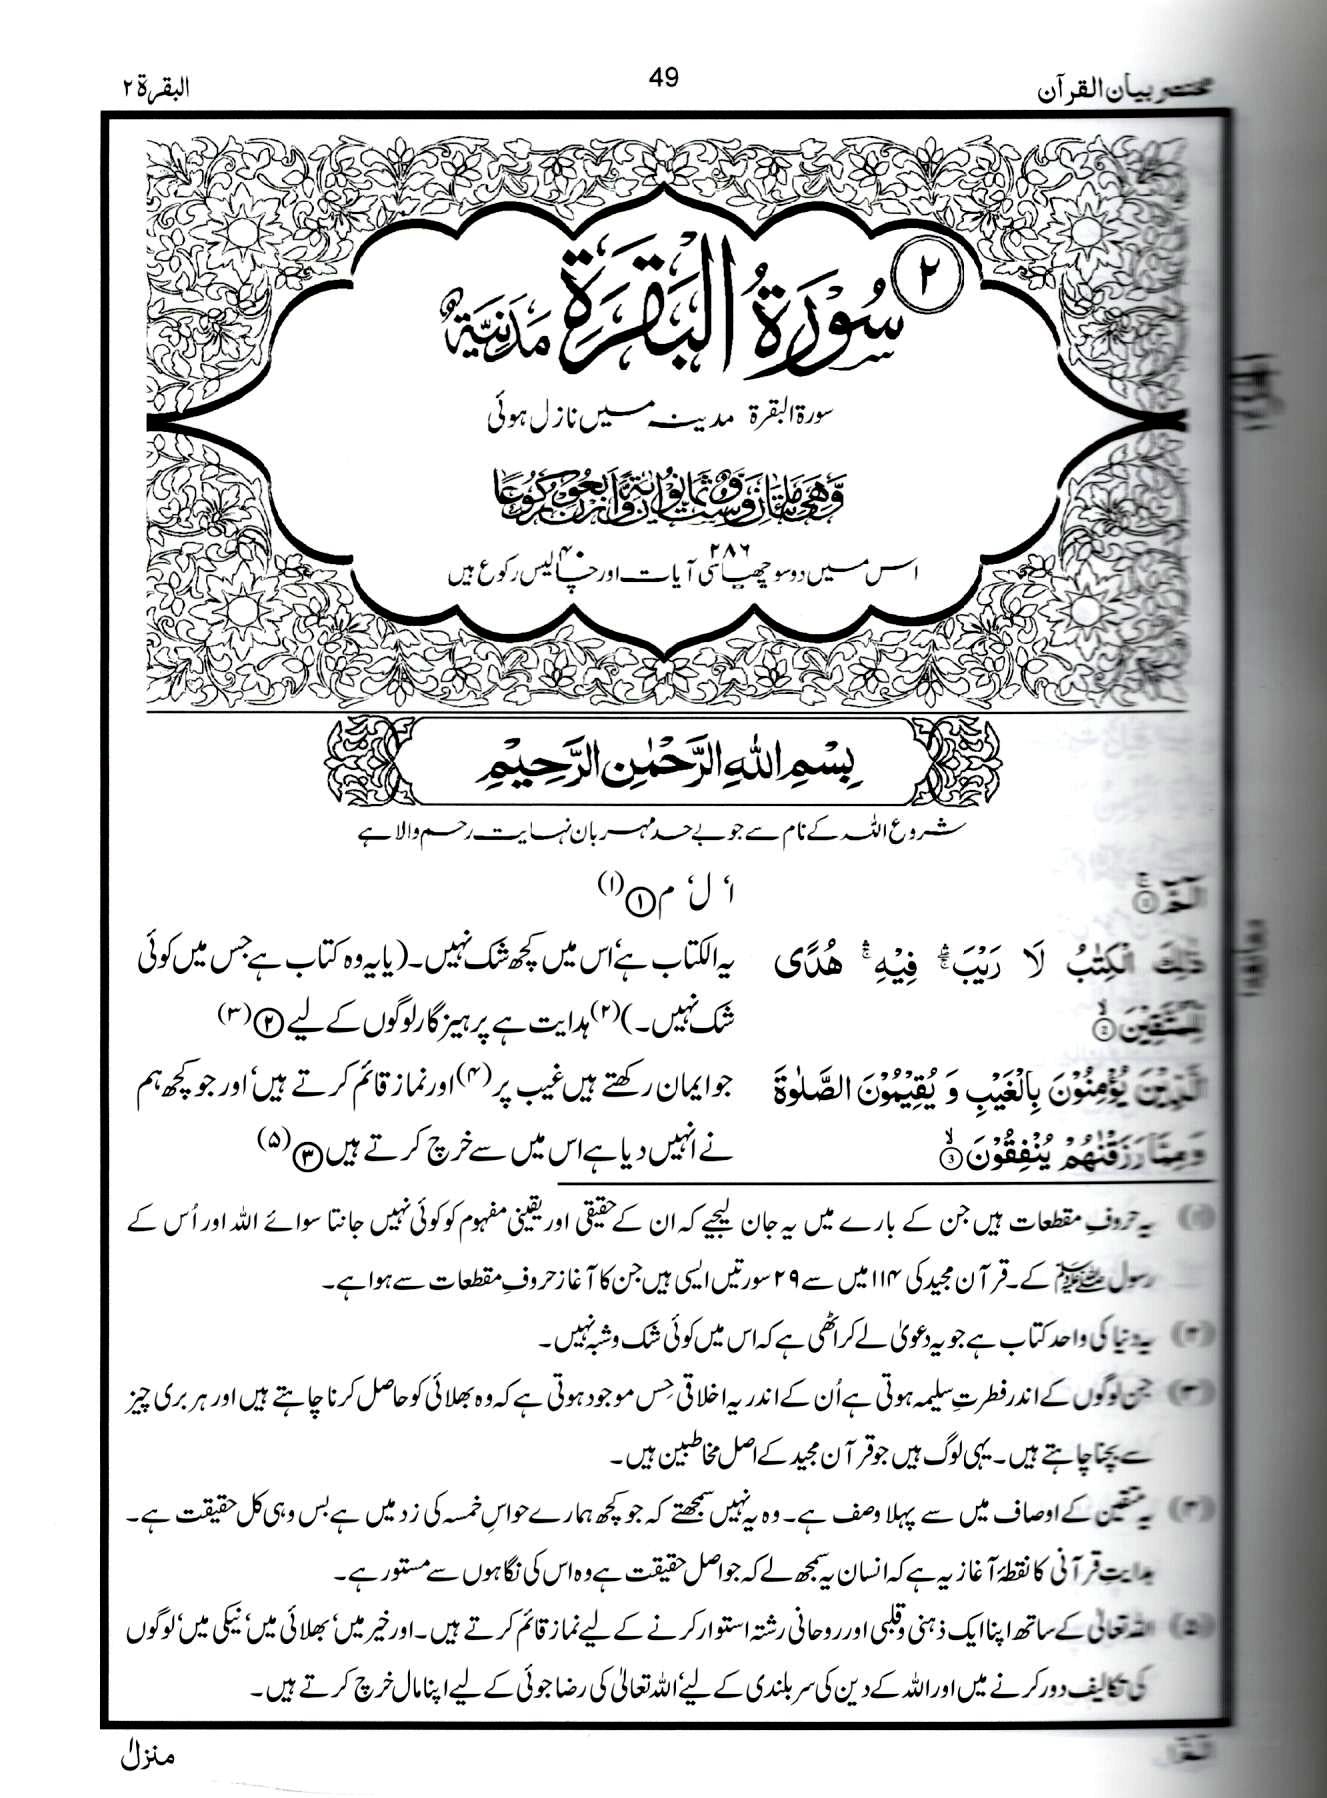 مختصر بیان القرآن
49
البقرۃ ۲
۲
سُوْرَةُ الْبَقَرَةِ مَدَنِيَّةٌ
سورۃ البقرۃ مدینہ میں نازل ہوئی
وَّهِيَ مِائَتَانِ وَسِتٌّ وَّثَمَانُوْنَ اٰيَةً وَّاَرْبَعُوْنَ رُكُوْعًا
اس میں دو سو چھیاسی ۲۸۶ آیات اور چالیس ۴۰ رکوع ہیں
بِسْمِ اللّٰهِ الرَّحْمٰنِ الرَّحِيْمِ
شروع اللہ کے نام سے جو بے حد مہربان نہایت رحم والا ہے
الٓمّٓ ۚ①
ا‘ ل‘ م ①(۱)
ذٰلِكَ الْكِتٰبُ لَا رَيْبَ ۛ فِيْهِ ۛ هُدًى
یہ الکتاب ہے‘ اس میں کچھ شک نہیں۔ (یا یہ وہ کتاب ہے جس میں کوئی
لِّلْمُتَّقِيْنَ ۙ②
شک نہیں۔)(۲) ہدایت ہے پرہیزگار لوگوں کے لیے ②(۳)
الَّذِيْنَ يُؤْمِنُوْنَ بِالْغَيْبِ وَ يُقِيْمُوْنَ الصَّلٰوةَ
جو ایمان رکھتے ہیں غیب پر(۴) اور نماز قائم کرتے ہیں‘ اور جو کچھ ہم
وَمِمَّا رَزَقْنٰهُمْ يُنْفِقُوْنَ ۙ③
نے انہیں دیا ہے اس میں سے خرچ کرتے ہیں ③(۵)
(۱) یہ حروفِ مقطعات ہیں جن کے بارے میں یہ جان لیجیے کہ ان کے حقیقی اور یقینی مفہوم کو کوئی نہیں جانتا سوائے اللہ اور اُس کے
رسول ﷺ کے۔ قرآن مجید کی ۱۱۴ میں سے ۲۹ سورتیں ایسی ہیں جن کا آغاز حروفِ مقطعات سے ہوا ہے۔
(۲) یہ دنیا کی واحد کتاب ہے جو یہ دعویٰ لے کر اٹھی ہے کہ اس میں کوئی شک و شبہ نہیں۔
(۳) جن لوگوں کے اندر فطرتِ سلیمہ ہوتی ہے اُن کے اندر یہ اخلاقی حِس موجود ہوتی ہے کہ وہ بھلائی کو حاصل کرنا چاہتے ہیں اور ہر بری چیز
سے بچنا چاہتے ہیں۔ یہی لوگ ہیں جو قرآن مجید کے اصل مخاطبین ہیں۔
(۴) یہ متقین کے اوصاف میں سے پہلا وصف ہے۔ وہ یہ نہیں سمجھتے کہ جو کچھ ہمارے حواسِ خمسہ کی زد میں ہے بس وہی کل حقیقت ہے۔
ہدایتِ قرآنی کا نقطۂ آغاز یہ ہے کہ انسان یہ سمجھ لے کہ جو اصل حقیقت ہے وہ اس کی نگاہوں سے مستور ہے۔
(۵) اللہ تعالیٰ کے ساتھ اپنا ایک ذہنی و قلبی اور روحانی رشتہ استوار کرنے کے لیے نماز قائم کرتے ہیں۔ اور خیر میں‘ بھلائی میں‘ نیکی میں‘ لوگوں
کی تکالیف دور کرنے میں اور اللہ کے دین کی سربلندی کے لیے‘ اللہ تعالیٰ کی رضا جوئی کے لیے اپنا مال خرچ کرتے ہیں۔
منزل ۱